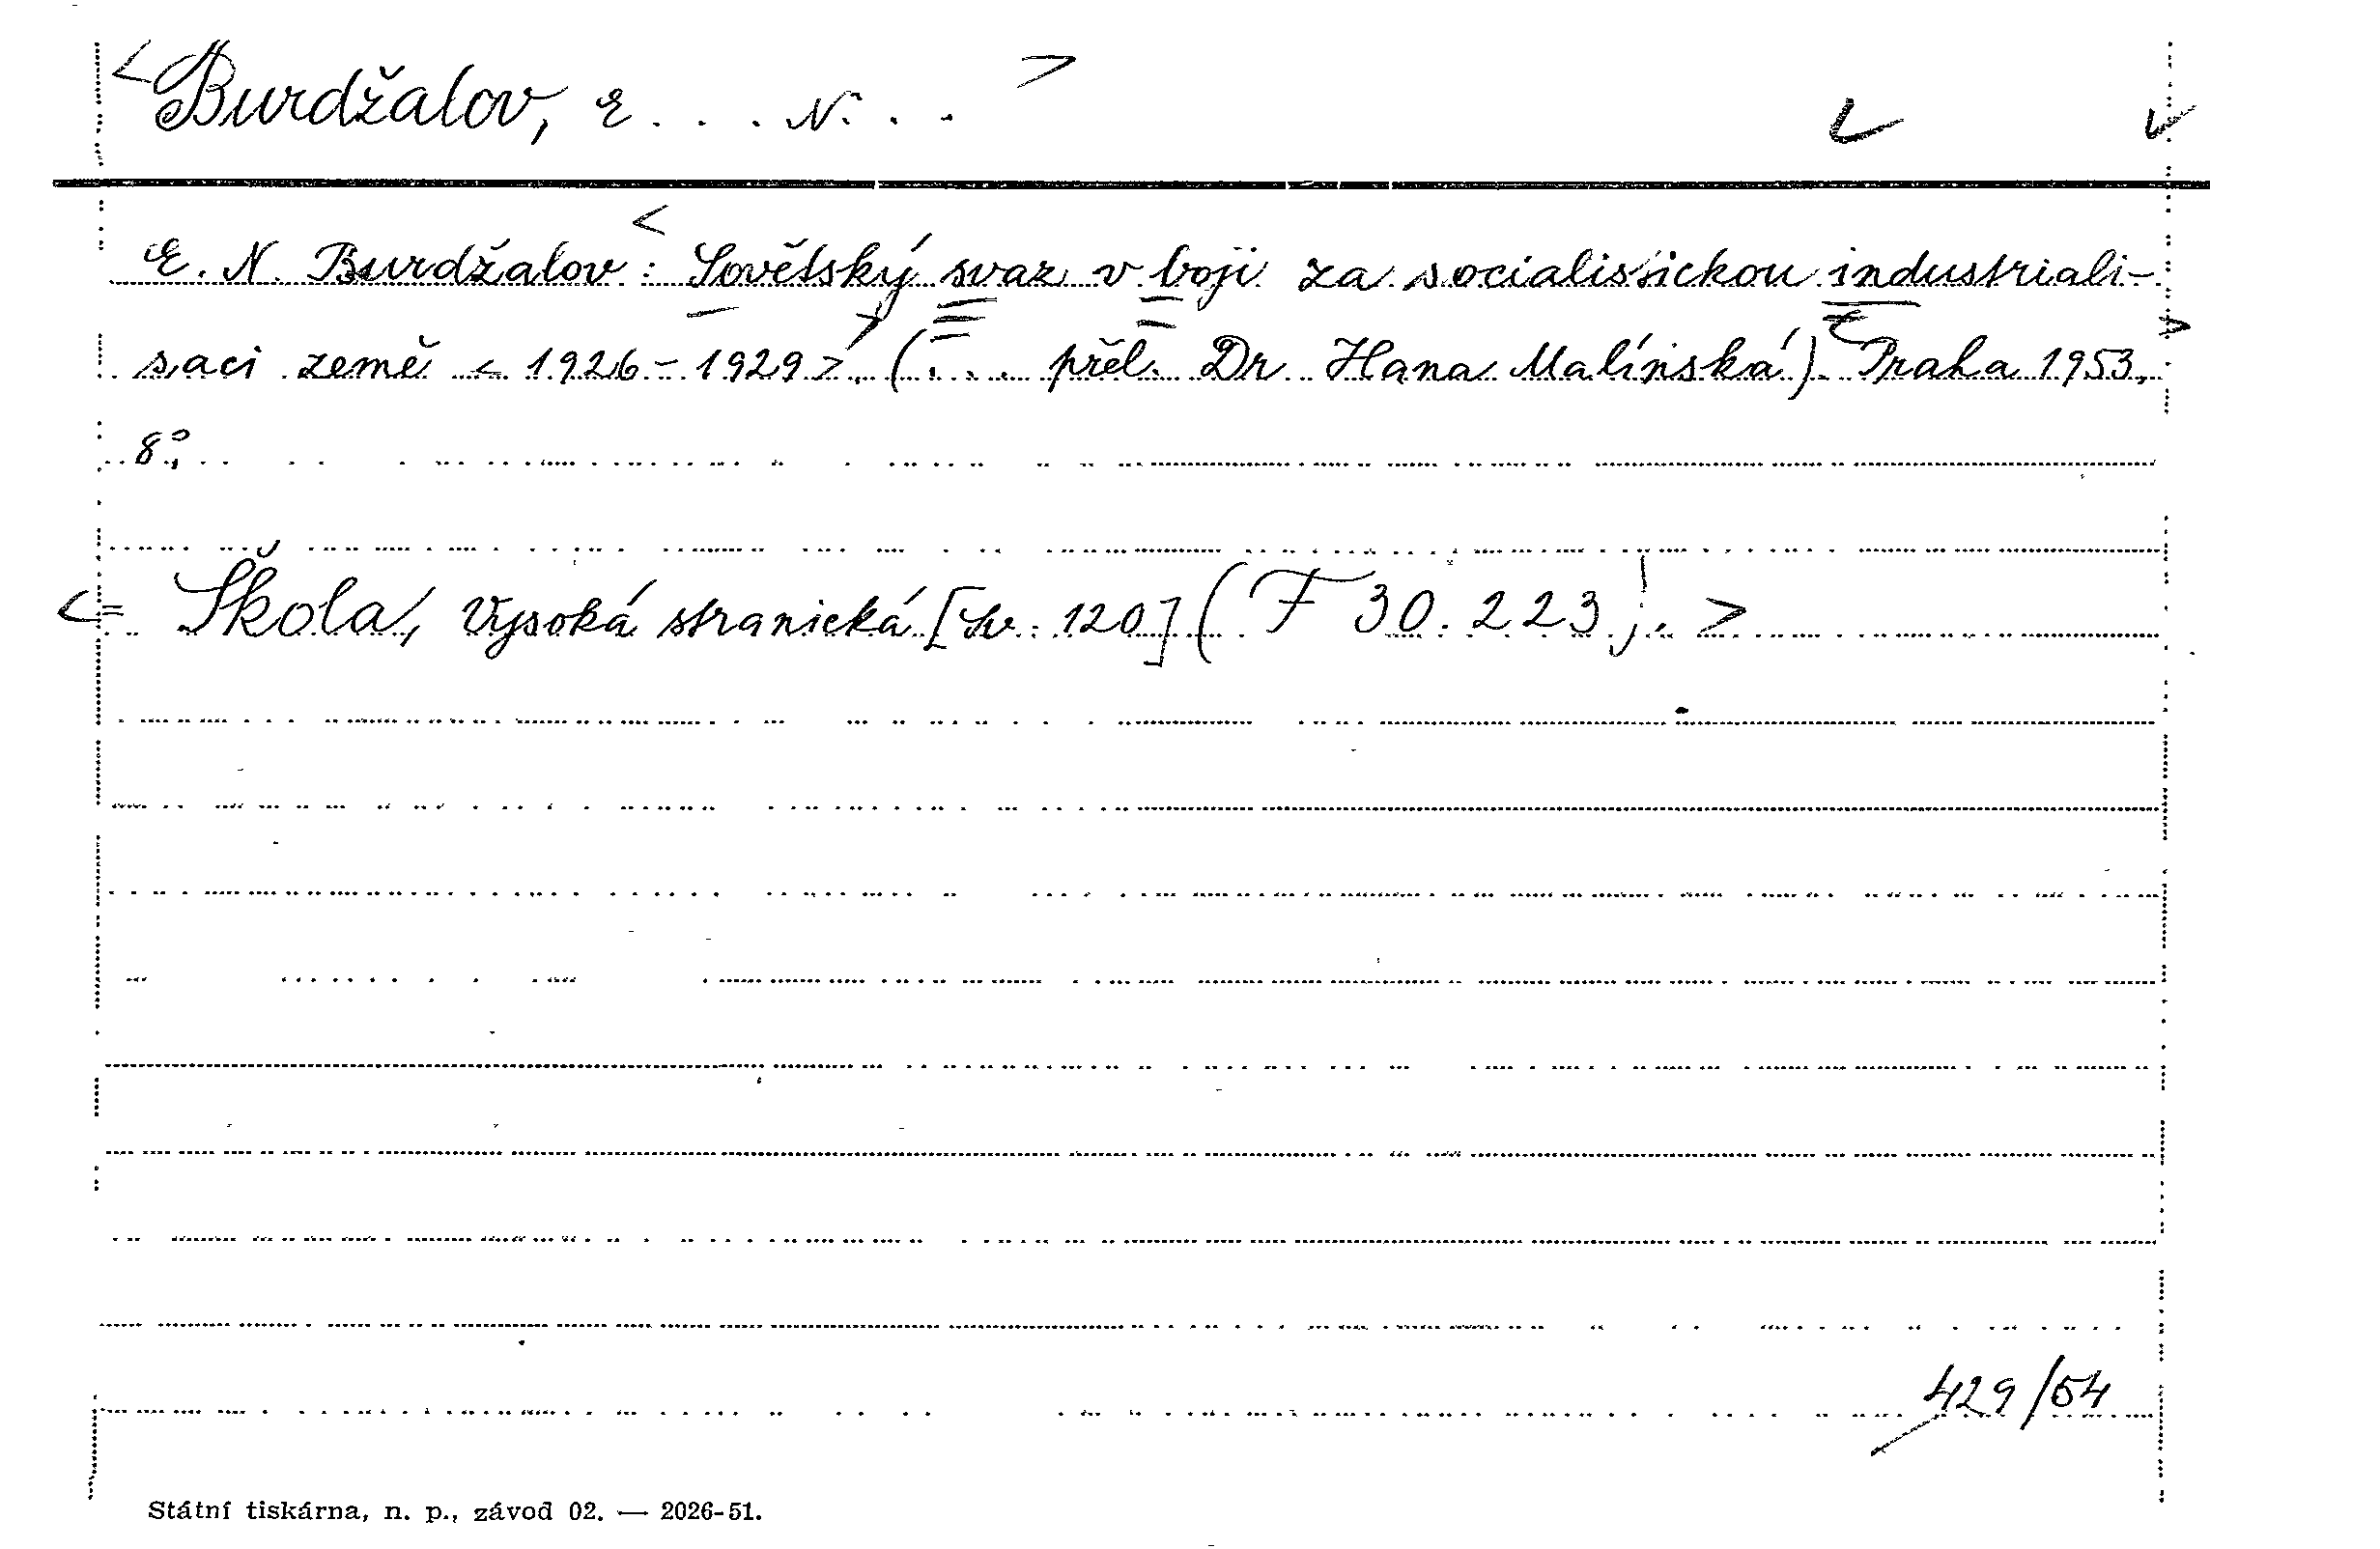 <Burdžalov, E . . . N. . . >
E. N. Burdžalov: <Sovětský svaz v boji za socialistickou industriali-
saci země < 1926 - 1929 >. (. . . přel. Dr Hana Malínská). Praha 1953,>
8°,
<= Škola, Vysoká stranická [Sv. 120] (F 30.223). >
429/54
Státní tiskárna, n. p., závod 02. — 2026-51.